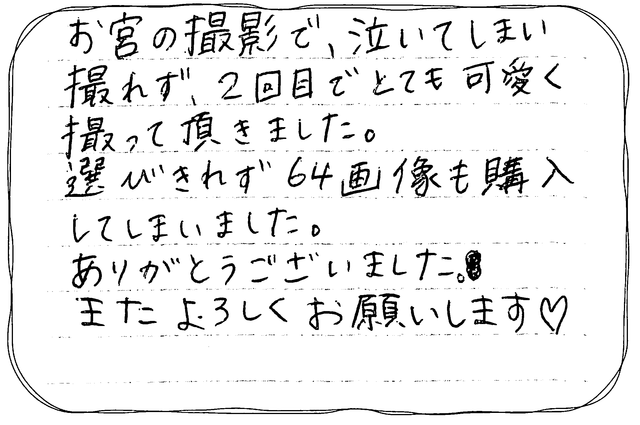 お宮の撮影で、泣いてしまい
撮れず、2回目でとても可愛く
撮って頂きました。
選びきれず64画像も購入
してしまいました。
ありがとうございました。
またよろしくお願いします♡